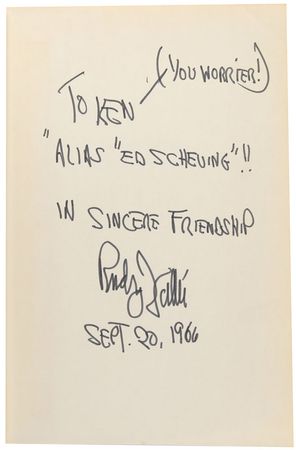 (YOU WORRIER!)
TO KEN
"ALIAS "ED SCHEUING"!!
IN SINCERE FRIENDSHIP
Rudy Vallée
SEPT. 20, 1966